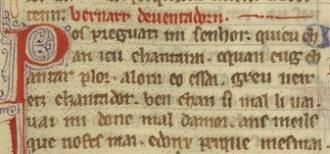 tenn. bernart deuentadorn.
Pos preguatz mi senhor. quieu ch
an ieu chantarai. equan cug ch
antar plor. alora co essai. greu uei
en chantador. ben chan si mal li ua.
uai mi donc mal damor. ans meils
que nofes mai. e donc perque mesmai